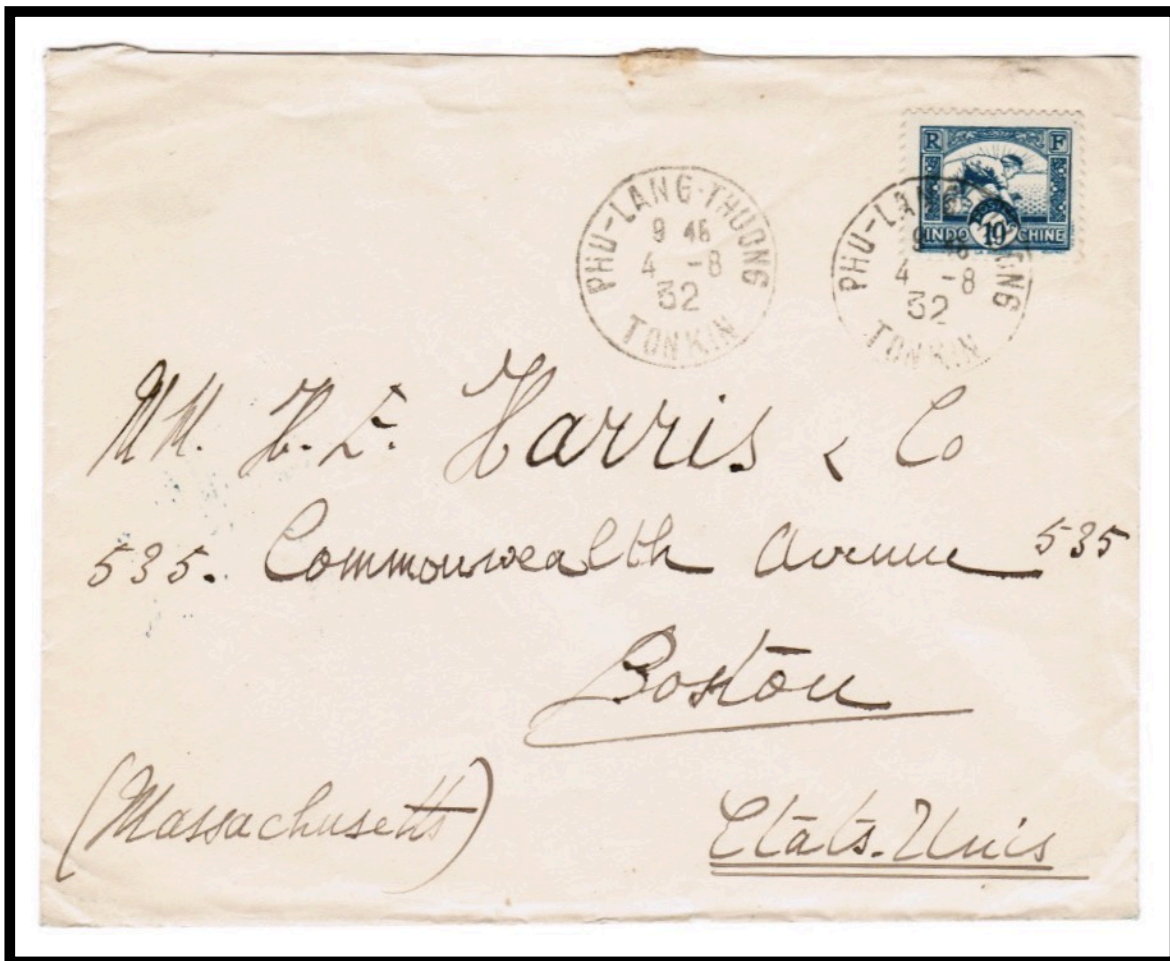 R F
POSTES
INDO 10 CHINE
PHU-LANG-THUONG
9 46
4 -8
32
TONKIN
PHU-LANG-THUONG
9 46
4 -8
32
TONKIN
MM. H. E. Harris & Co
535. Commonwealth Avenue 535
Boston
(Massachusetts)
Etats-Unis